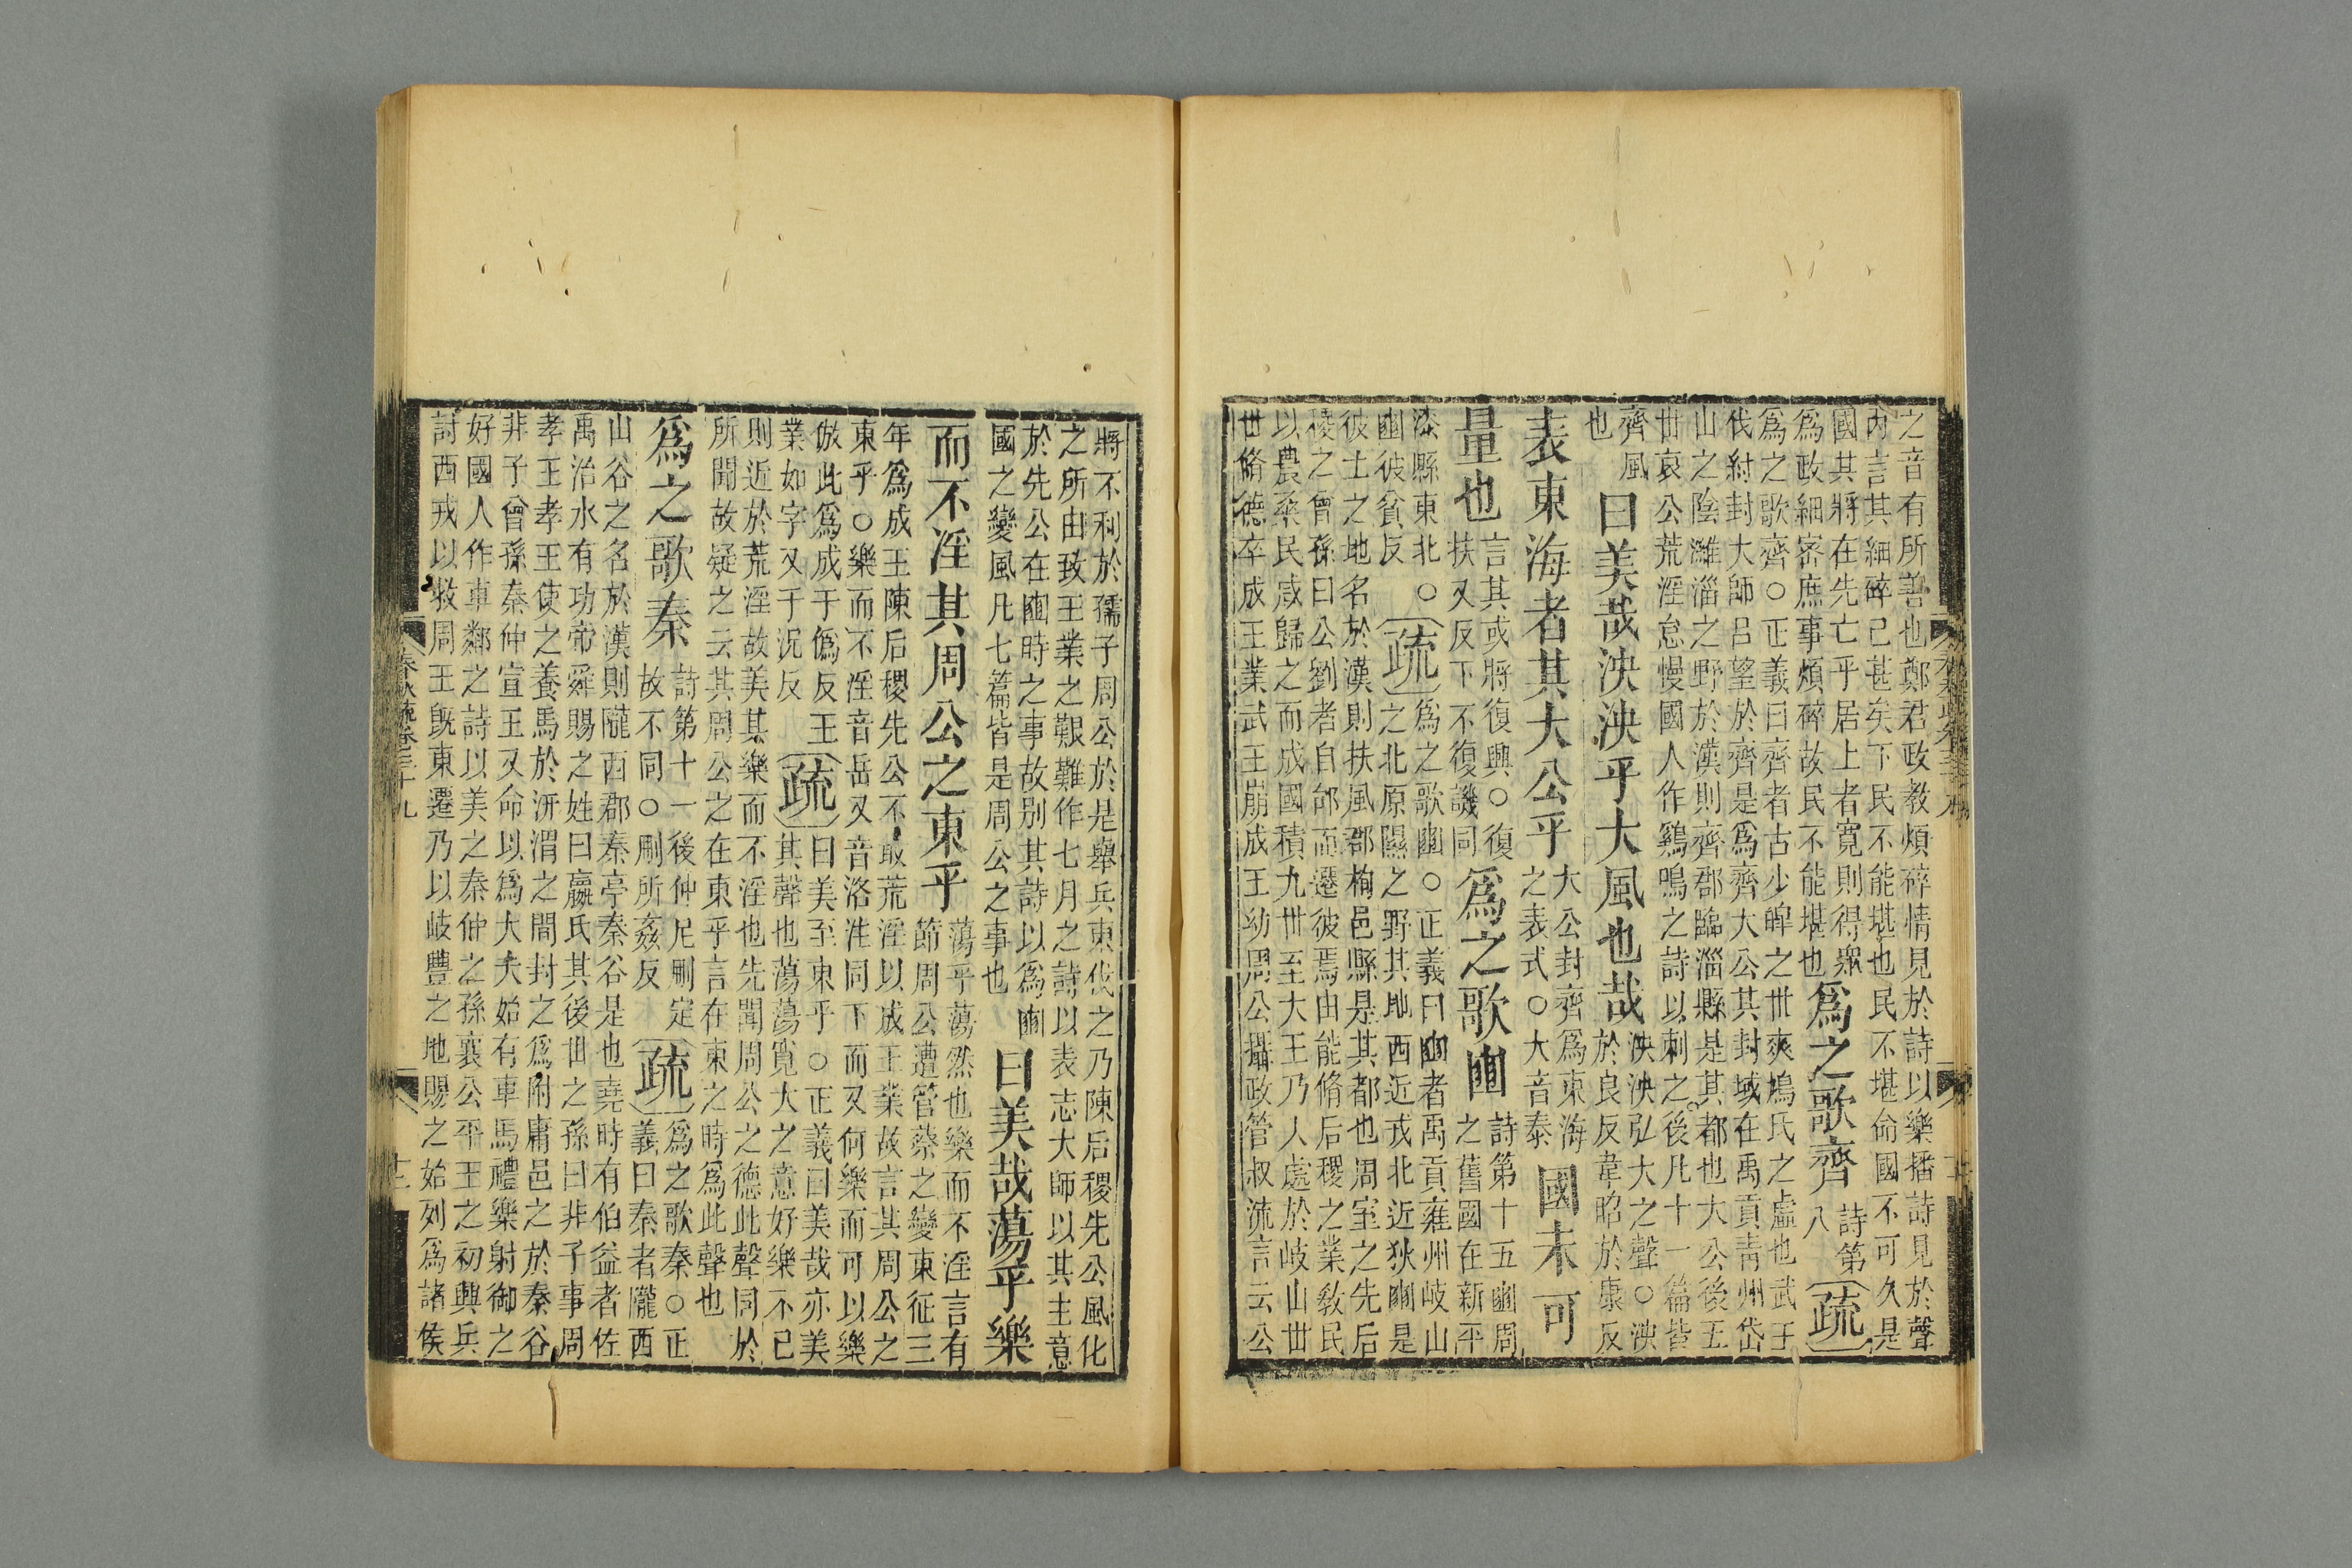 之音有所善也鄭君政教煩碎情見於詩以樂播詩見於聲
内言其細碎已甚矣下民不能堪也民不堪俞國不可久是
國其將在先亡乎居上者寬則得衆
爲政細密庶事煩碎故民不能堪也
爲之歌齊
詩第
八
疏
爲之歌齊○正義曰齊者古少皥之世爽鳩氏之虛也武王
伐紂封大師呂望於齊是爲齊大公其封域在禹貢青州岱
山之陰濰淄之野於漢則齊郡臨淄縣是其都也大公後五
世哀公荒淫怠慢國人作鷄鳴之詩以刺之後凡十一篇皆
齊風
也
曰美哉泱泱乎大風也哉
泱泱弘大之聲○泱
於良反韋昭於康反
表東海者其大公乎
大公封齊爲東海
之表式○大音泰
國未可
量也
言其或將復興○復
扶又反下不復譏同
爲之歌豳
詩第十五豳周
之舊國在新平
漆縣東北○
豳彼貧反
疏
爲之歌豳○正義曰豳者禹貢雍州岐山
之北原隰之野其地西近戎北近狄豳是
彼土之地名於漢則扶風郡栒邑縣是其都也周室之先后
稷之曾孫曰公劉者自邰而遷彼焉由能脩后稷之業教民
以農桑民咸歸之而成國積九世至大王乃人處於岐山世
世脩德卒成王業武王崩成王幼周公攝政管叔流言云公
將不利於孺子周公於是舉兵東伐之乃陳后稷先公風化
之所由致王業之艱難作七月之詩以表志大師以其主意
於先公在豳時之事故别其詩以爲豳
國之變風凡七篇皆是周公之事也
曰美哉蕩乎樂
而不淫其周公之東乎
蕩乎蕩然也樂而不淫言有
節周公遭管蔡之變東征三
年爲成王陳后稷先公不敢荒淫以成王業故言其周公之
東乎○樂而不淫音岳又音洛注同下而又何樂而可以樂
倣此爲成于僞反王
業如字又于況反
疏
曰美至東乎○正義曰美哉亦美
其聲也蕩蕩寬大之意好樂不已
則近於荒淫故美其樂而不淫也先聞周公之德此聲同於
所聞故疑之云其周公之在東乎言在東之時爲此聲也
爲之歌秦
詩第十一後仲尼刪定
故不同○刪所姦反
疏
爲之歌秦○正
義曰秦者隴西
山谷之名於漢則隴西郡秦亭秦谷是也堯時有伯益者佐
禹治水有功帝舜賜之姓曰嬴氏其後世之孫曰非子事周
孝王孝王使之養馬於汧渭之間封之爲附庸邑之於秦谷
非子曾孫秦仲宣王又命以爲大夫始有車馬禮樂射御之
好國人作車鄰之詩以美之秦仲之孫襄公平王之初興兵
討西戎以救周王既東遷乃以岐豐之地賜之始列爲諸侯
春秋疏卷三十九
十二